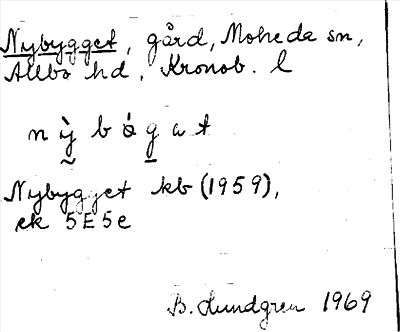 Nybygget, gård, Moheda sn,
Allbo hd, Kronob. l
n ỳ̰ b ó g̲ a t
Nybygget kb (1959),
ek 5E5e
B. Lundgren 1969